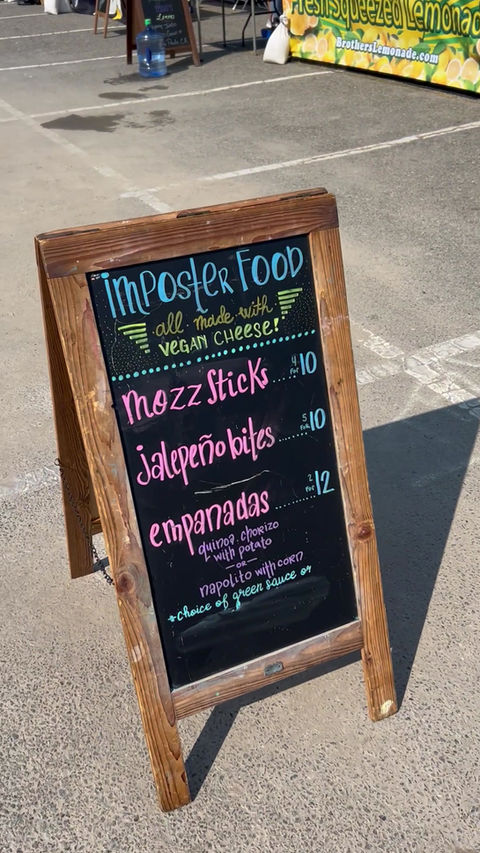 FreshSqueezedLemonade
BrothersLemonade.com
imposter FOOD
all made with
VEGAN CHEESE!
mozz Sticks ..... 4 for 10
jalepeño bites ....... 5 for 10
empanadas ......... 2 for 12
quinoa chorizo
with potato
— OR —
napolito with corn
*choice of green sauce or